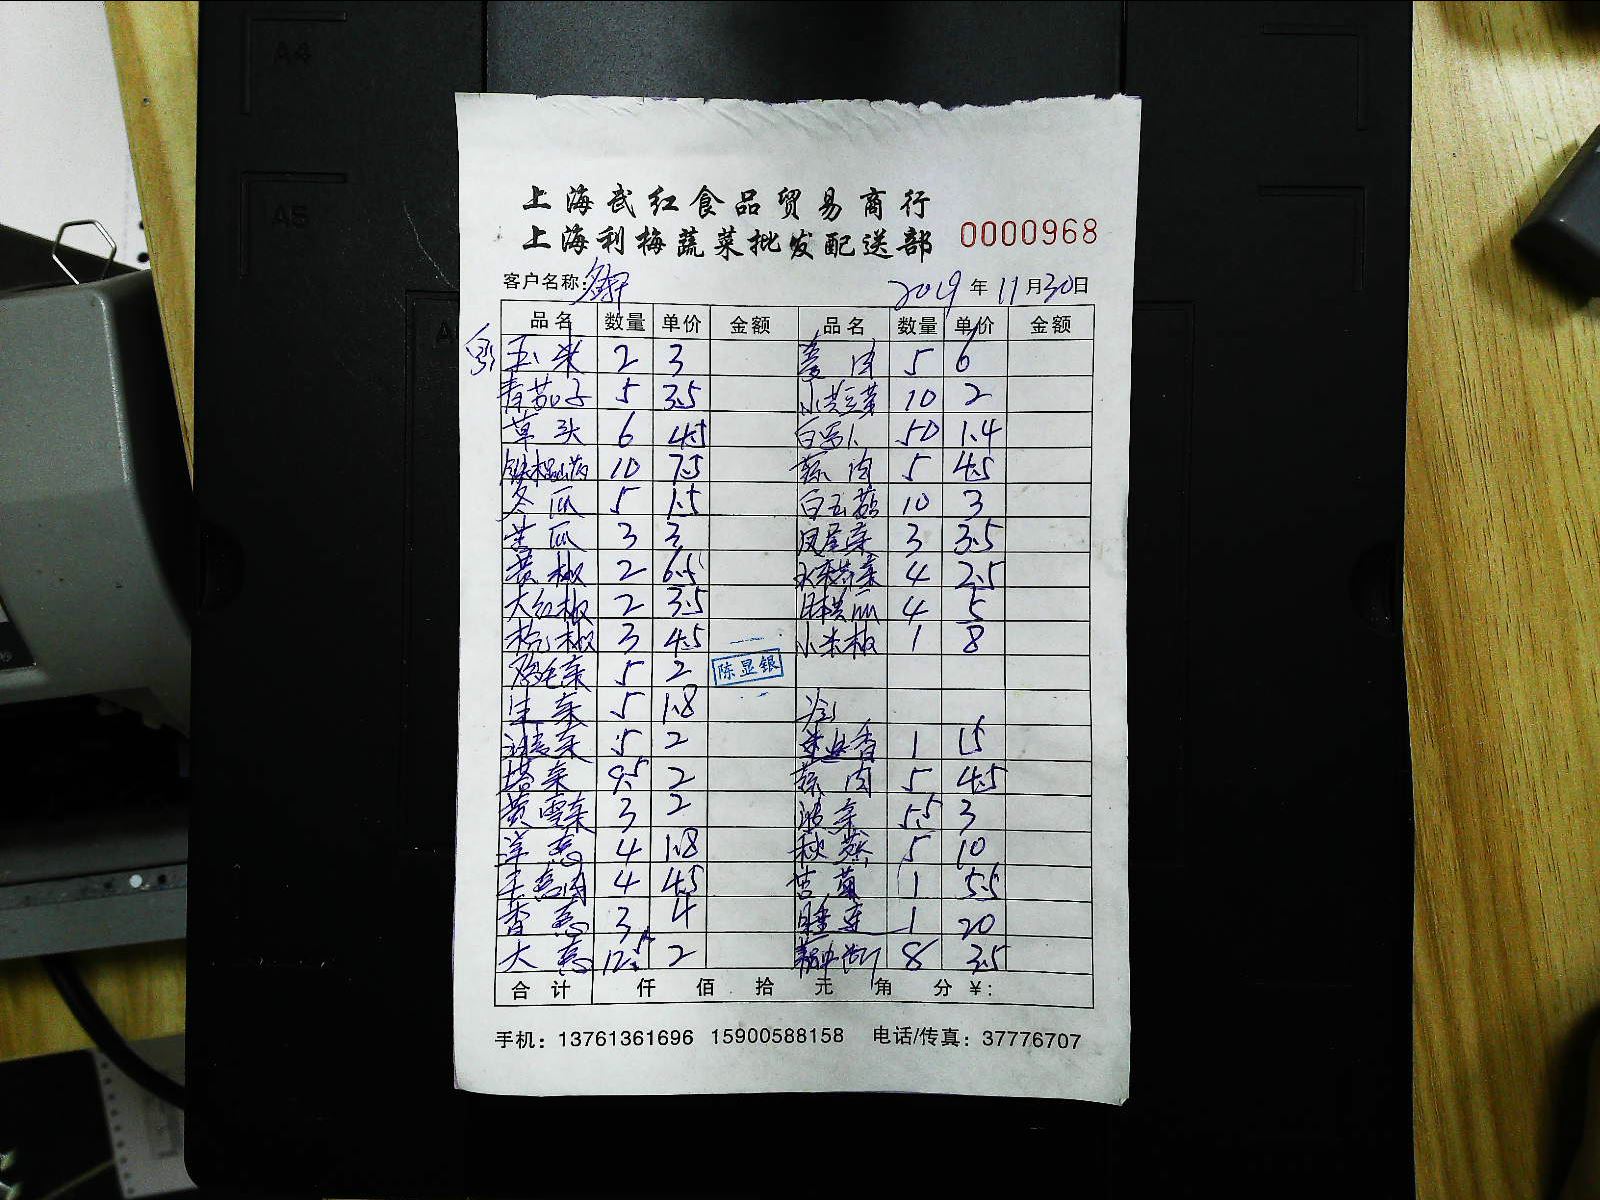 A4
A5
上海武红食品贸易商行
上海利梅蔬菜批发配送部 0000968
客户名称: 2019年11月30日
品名 数量 单价 金额 品名 数量 单价 金额
玉米 2 3 姜肉 5 6
青茄子 5 3.5 小黄豆芽 10 2
草头 6 4.5 白萝卜 50 1.4
铁棍山药 10 7.5 蒜肉 5 4.5
冬瓜 5 1.5 白玉菇 10 3
苦瓜 3 3 凤尾菜 3 3.5
黄椒 2 6.5 水果芹菜 4 2.5
大红椒 2 3.5 日本黄瓜 4 5
杭椒 3 4.5 小米椒 1 8
鸡毛菜 5 2
陈显银
生菜 5 1.8 冷
油麦菜 5 2 迷迭香 1 15
塔菜 9.5 2 蒜肉 5 4.5
黄雪菜 3 2 菠菜 5.5 3
洋葱 4 1.8 秋葵 5 10
王葱肉 4 4.5 苦菊 1 5.5
香葱 3 4 睡莲 1 20
大葱 12.5 2 8 3.5
合计 仟 佰 拾 元 角 分 ¥:
手机: 13761361696 15900588158 电话/传真: 37776707